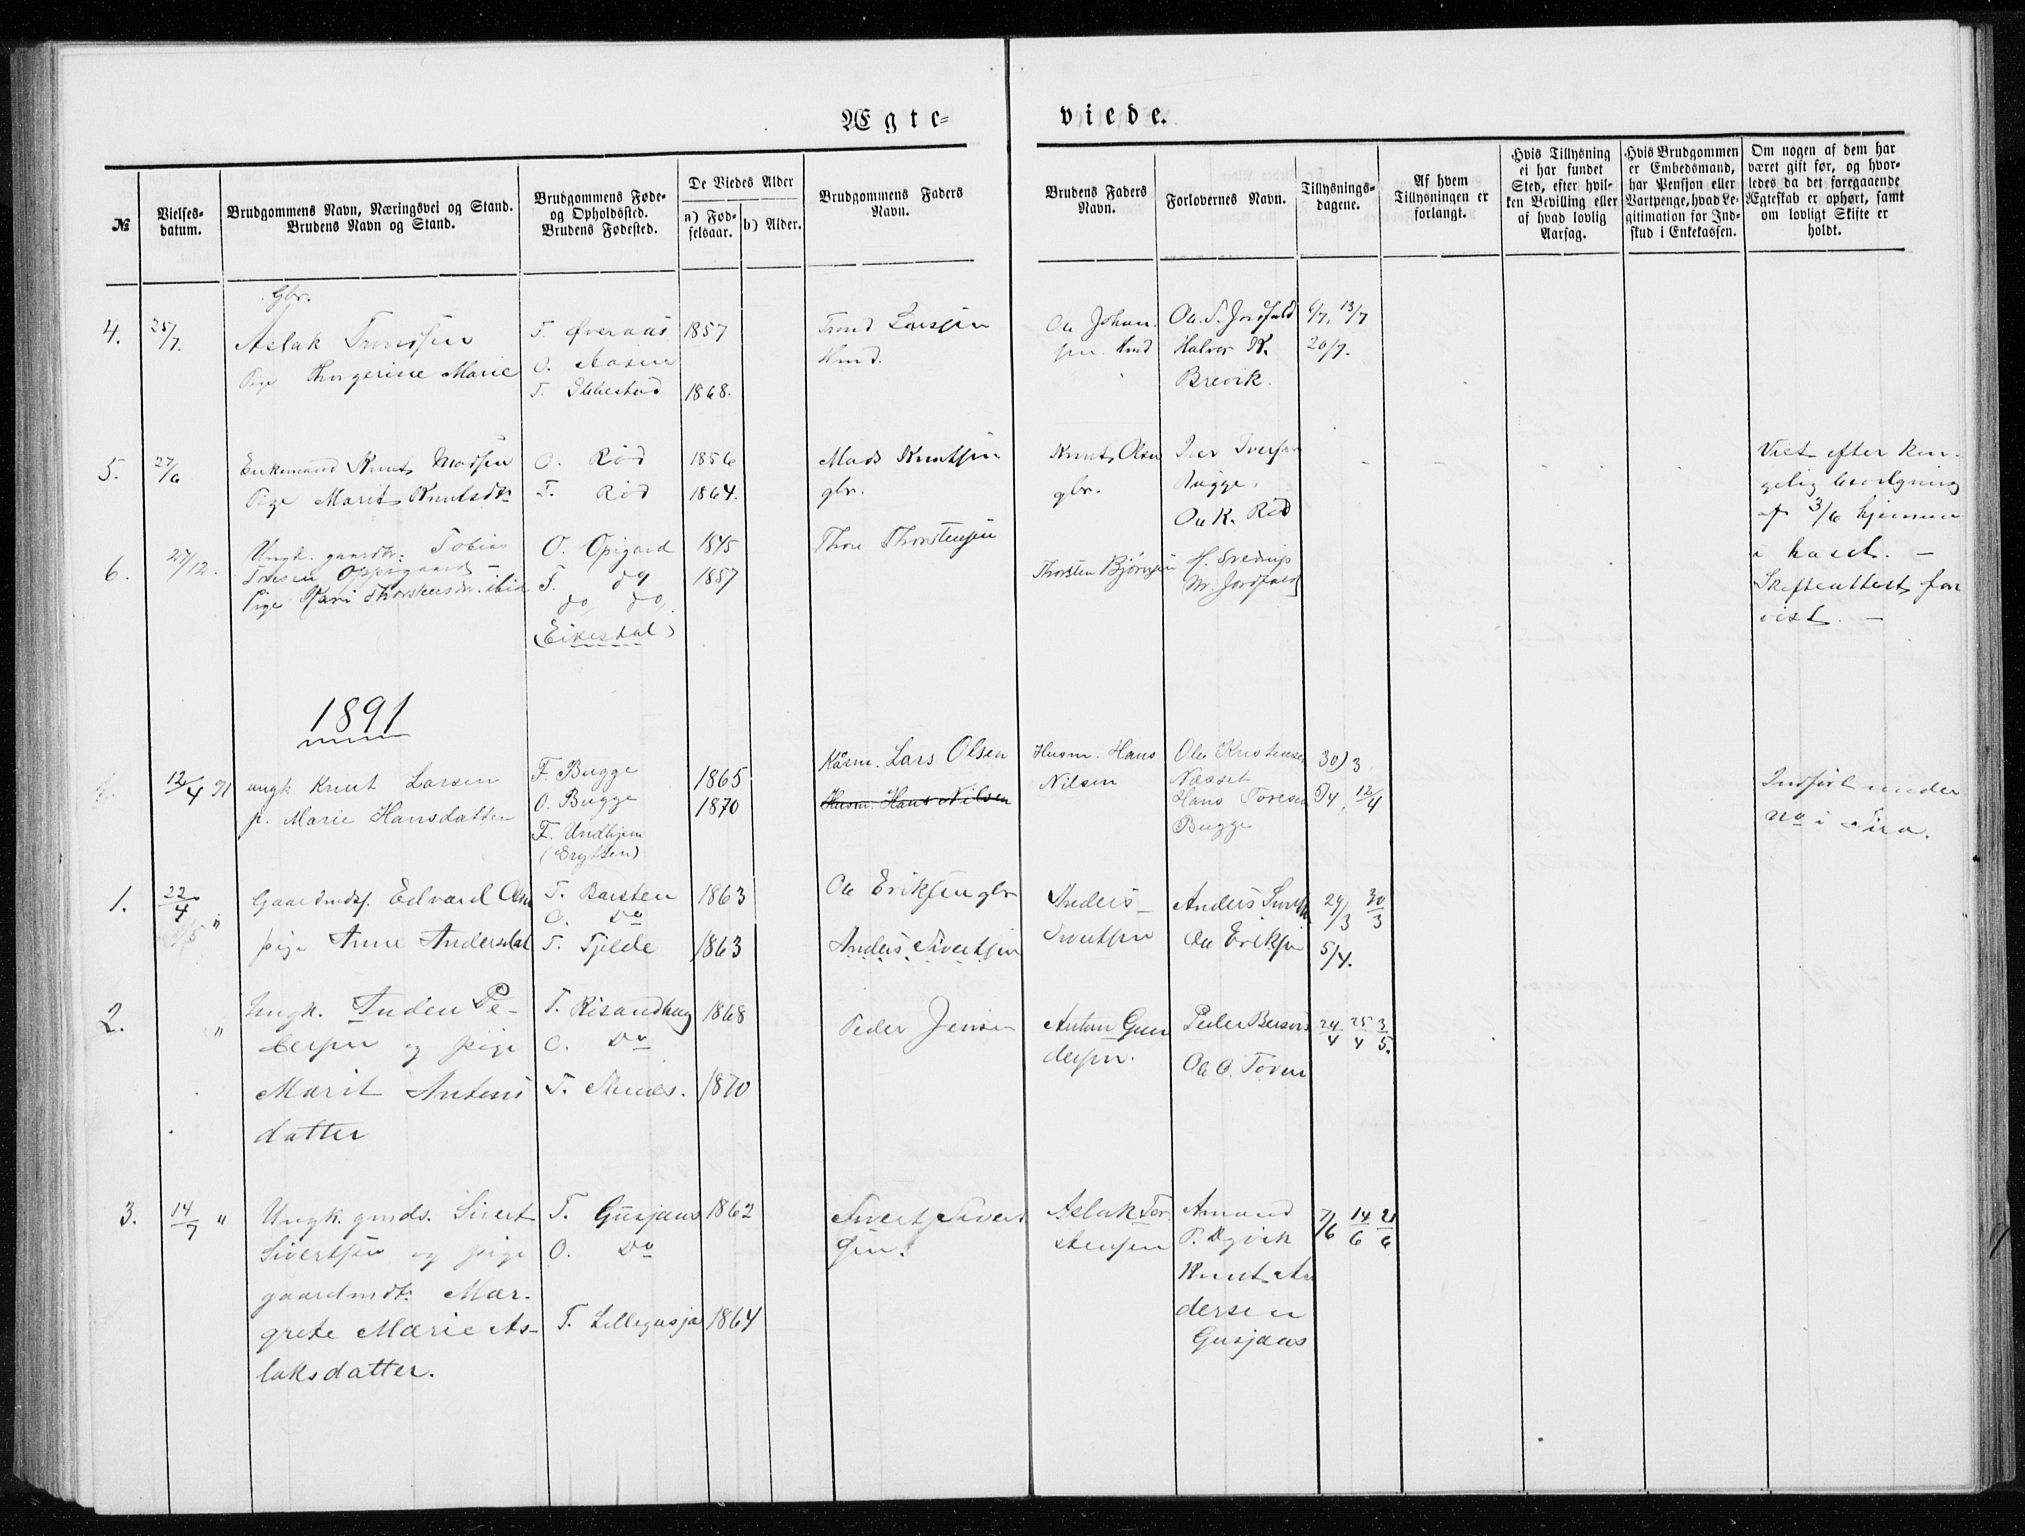 Ægte-
viede.
№
Vielses-
datum.
Brudgommens Navn, Næringsvei og Stand.
Brudens Navn og Stand.
Brudgommens Føde-
og Opholdssted.
Brudens Fødested.
De Viedes Alder
a) Fød-
selsaar.
b) Alder.
Brudgommens Faders
Navn.
Brudens Faders
Navn.
Forlovernes Navn.
Tillysnings-
dagene.
Af hvem
Tillysningen er
forlangt.
Hvis Tillysning
ei har fundet
Sted, efter hvil-
ken Bevilling eller
af hvad lovlig
Aarsag.
Hvis Brudgommen
er Embedsmand,
har Pensjon eller
Vartpenge, hvad Le-
gitimation for Ind-
skud i Enkekassen.
Om nogen af dem har
været gift før, og hvor-
ledes da det foregaaende
Ægteskab er ophørt, samt
om lovligt Skifte er
holdt.
4.
25/7.
Gbr.
Aslak Trondsen
Pige Thorgerine Marie
F. Øveraas
O. Aasen
F.
1857
1868.
Trond Larssen
Hmd.
Ole Johan-
sen Hmd
Ole T. Jordfald
Halvor K.
Brevik.
6/7, 13/7
20/7.
5.
27/6
Enkemand Knut Madsen
Pige Marit Knutsdtr
O. Rød
F. Rød
1856
1864.
Mads Knutsen
gbr.
Knut Olsen
gbr.
Iver Iversen
Bugge.
Ole K. Rød
Viet efter kon-
gelig bevilgning
af 3/6 hjemme
i huset. -
Skifteattest fore-
vist. -
6.
27/12.
Ungk. gaardbr. Tobias
Toresen Oppigaard -
Pige Kari Thorstensdtr. ibid
O. Opigard
F. do
do, do,
(Eikesdal)
1845
1857
Thore Thorstensen
Thorsten Bjørnsen
H. Svedrup
M. Jordfald
1891
12/4 91
ungk Knut Larsen
p. Marie Hansdatter
F. Bugge
O. Bugge
F. Undhjem
(Grytten)
1865
1870
Husm. Lars Olsen
Husm. Hans Nilsen
Husm. Hans
Nilsen
Ole Kristensen
Næsset
Hans Toresen
Bugge
30/3,
5/4, 12/4
Indført under
no i Fira.
1.
22/4 "
Gaardmds. Edvard Olsen
pige Anne Andersdat
F. Barsten
O. Do
F. Tjelde
1863
1863
Ole Eriksen gbr
Anders Sivertsen
Anders
Sivertsen
Anders Sivertsen
Ole Eriksen
29/3 30/3
5/4.
2.
"
Ungk. Anden Pe-
dersen og pige
Marit Antons
datter
F. Risandhaug
O. Do
F.
1868
1870
Peder Jensen
Anton Gun
dersen.
Peder
Ole O. Toven
24/4 25/4 3/5.
3.
14/7 "
Ungk. gmds. Sivert
Sivertsen og pige
gaardmdtr. Mar-
grete Marie As-
laksdatter.
F. Gusjaas
O. Do
F. Lillegusjaa
1862
1864
Sivert Sivert
sen.
Aslak Tor
stensen
Amund
T. Dyvik
Knut An
dersen
Gusjaas
7/6 14/6 21/6